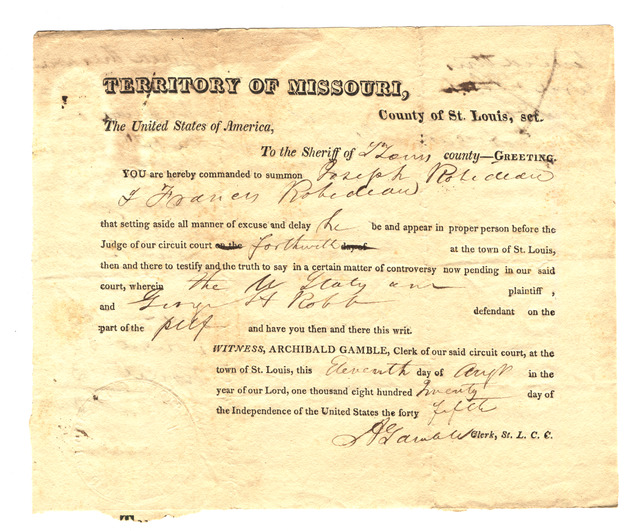 TERRITORY OF MISSOURI,
County of St. Louis, sct.
The United States of America,
To the Sheriff of St Louis county—GREETING.
YOU are hereby commanded to summon Joseph Robedeau
& Francis Robedeau
that setting aside all manner of excuse and delay he be and appear in proper person before the
Judge of our circuit court on the forthwith day of at the town of St. Louis,
then and there to testify and the truth to say in a certain matter of controversy now pending in our said
court, wherein the U States are plaintiff,
and George H Robb defendant on the
part of the pltf and have you then and there this writ.
WITNESS, ARCHIBALD GAMBLE, Clerk of our said circuit court, at the
town of St. Louis, this eleventh day of Augt in the
year of our Lord, one thousand eight hundred twenty day of
the Independence of the United States the forty fifth
A Gamble Clerk, St. L. C. C.